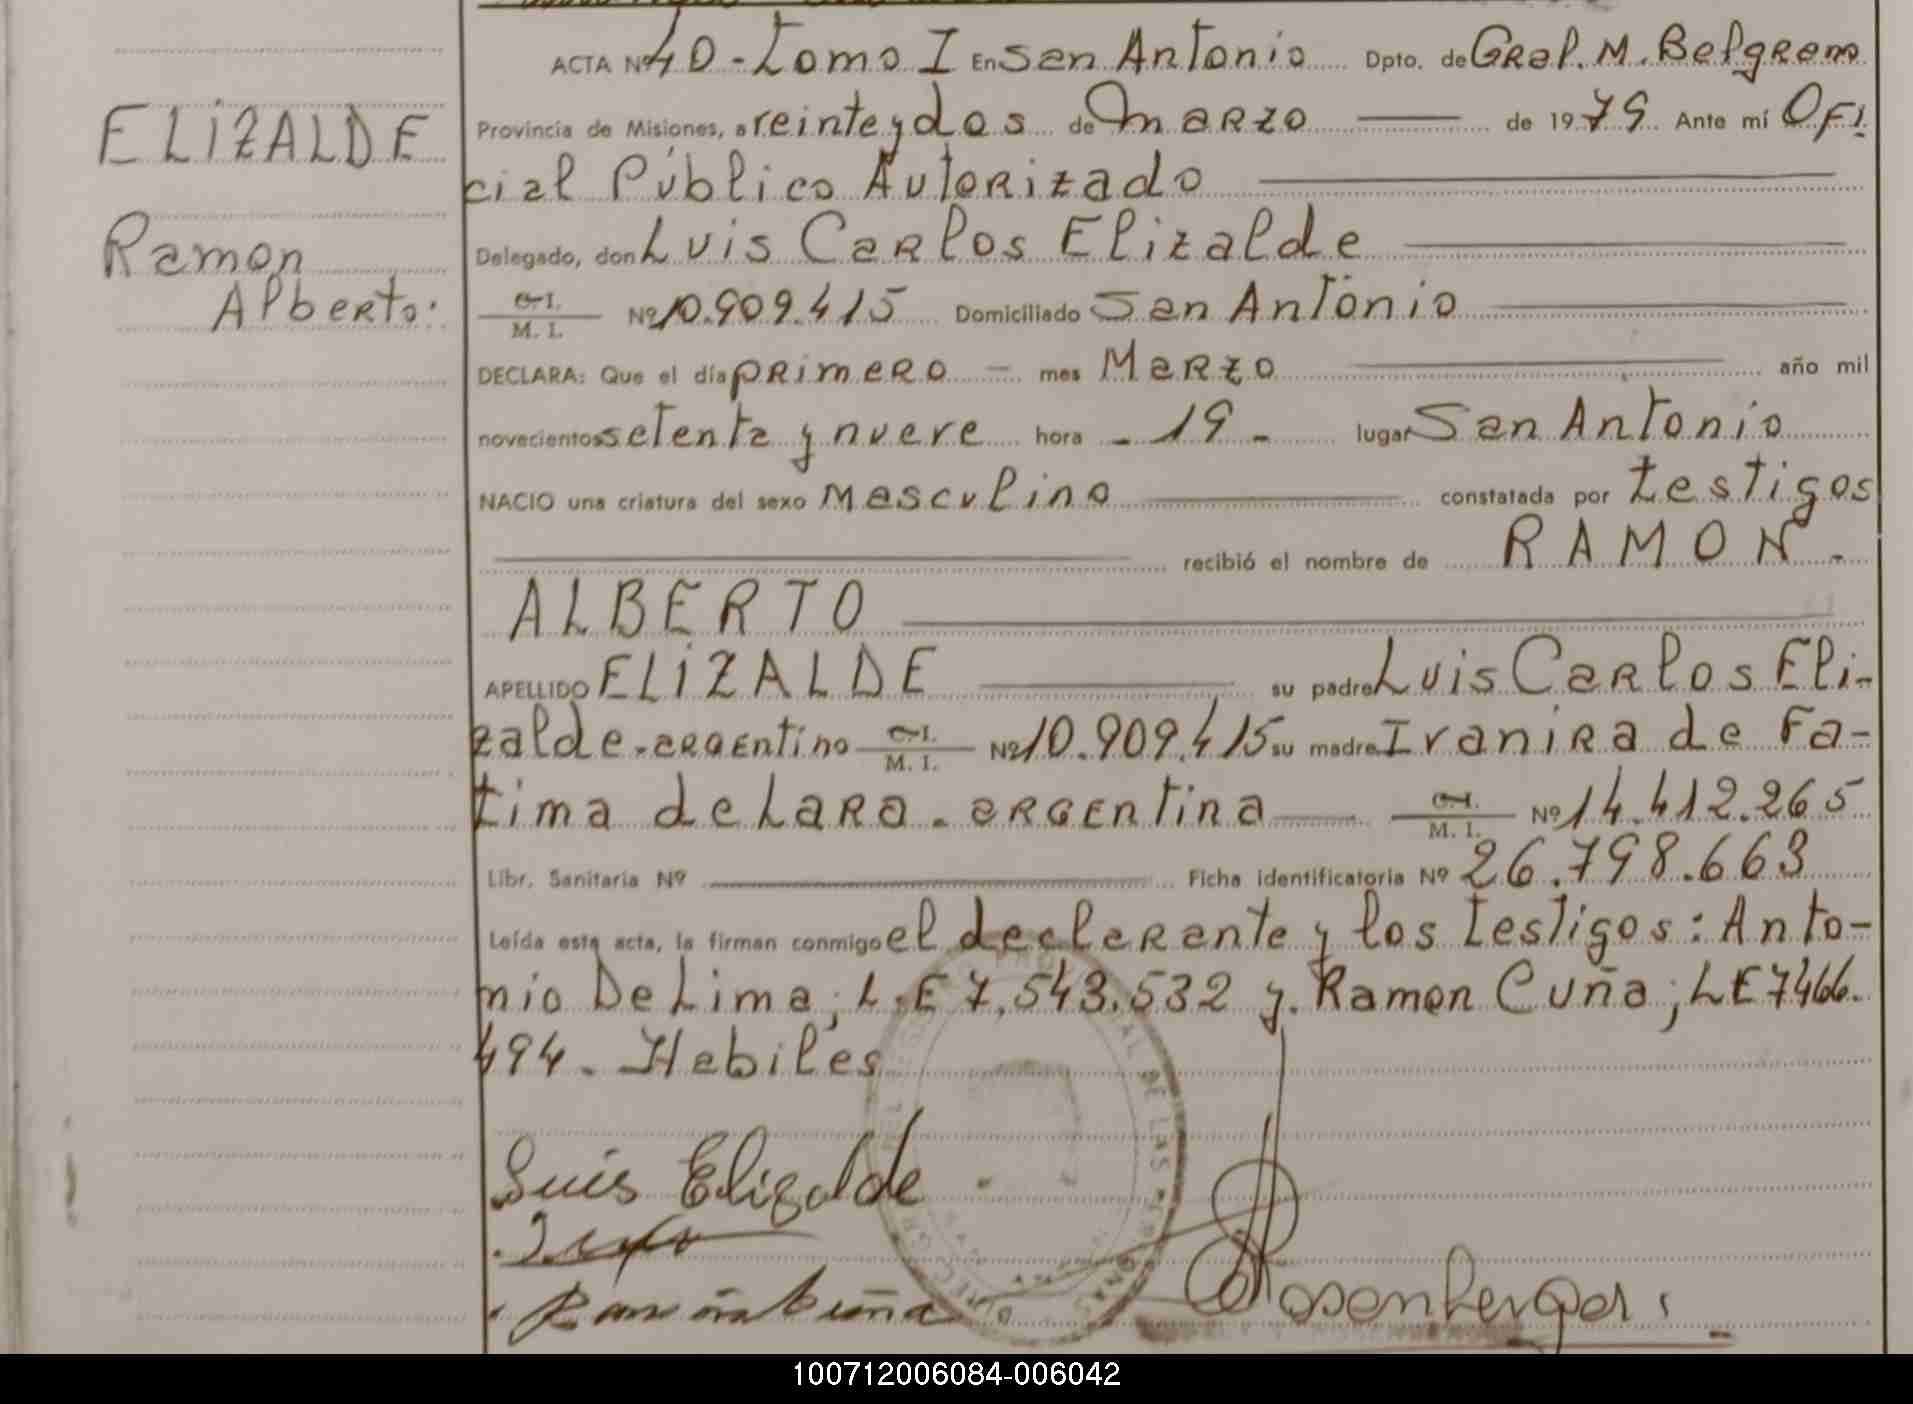 ACTA Nº 40 - Tomo I En San Antonio Dpto. de Gral. M. Belgrano
ELIZALDE
Provincia de Misiones, a veinte y dos de Marzo de 1979 Ante mí Ofi
cial Público Autorizado
Ramon
Alberto.
Delegado, don Luis Carlos Elizalde
C.I.
M. I. Nº 10.909.415 Domiciliado San Antonio
DECLARA: Que el día primero mes Marzo año mil
novecientos setenta y nueve hora - 19 - lugar San Antonio
NACIO una criatura del sexo Masculino constatada por testigos
recibió el nombre de RAMON -
ALBERTO
APELLIDO ELIZALDE su padre Luis Carlos Eli-
zalde - argentino C.I. M. I. Nº 10.909.415 su madre Ivanira de Fa-
tima de Lara - argentina C.I. M. I. Nº 14.412.265
Libr. Sanitaria Nº Ficha identificatoria Nº 26.798.663
Leída esta acta, la firman conmigo el declarante y los testigos: Anto-
nio De Lima, L.E 7.543.532 y Ramon Cuña, LE 7466.
494. Habiles
Luis Elizalde
Ramon Cuña
Rosenberger
100712006084-006042